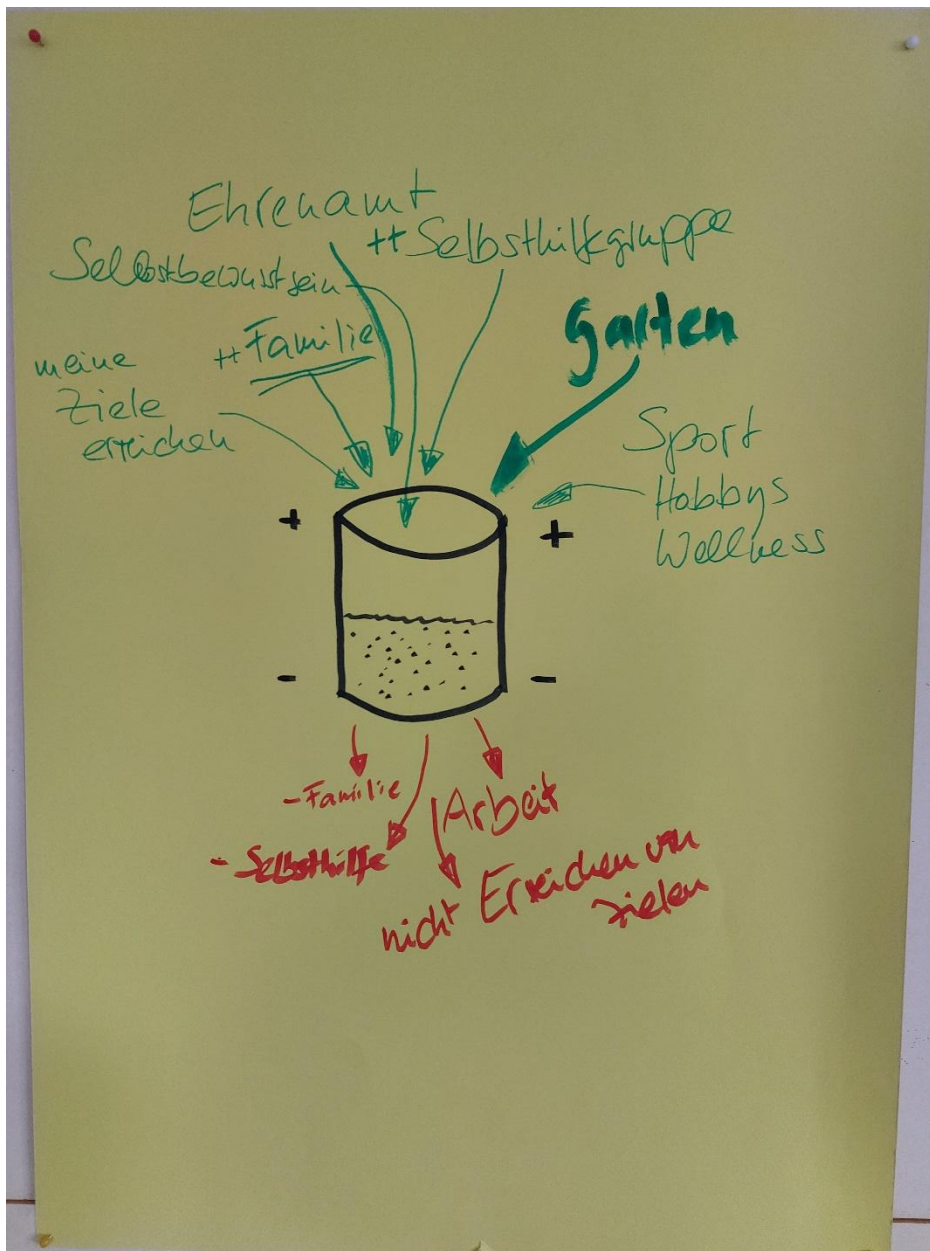 Ehrenamt
++ Selbsthilfegruppe
Selbstbewusstsein
++ Familie
Garten
meine
Ziele
erreichen
Sport
Hobbys
Wellness
+
+
-
-
- Familie
Arbeit
- Selbsthilfe
nicht Erreichen von
Zielen